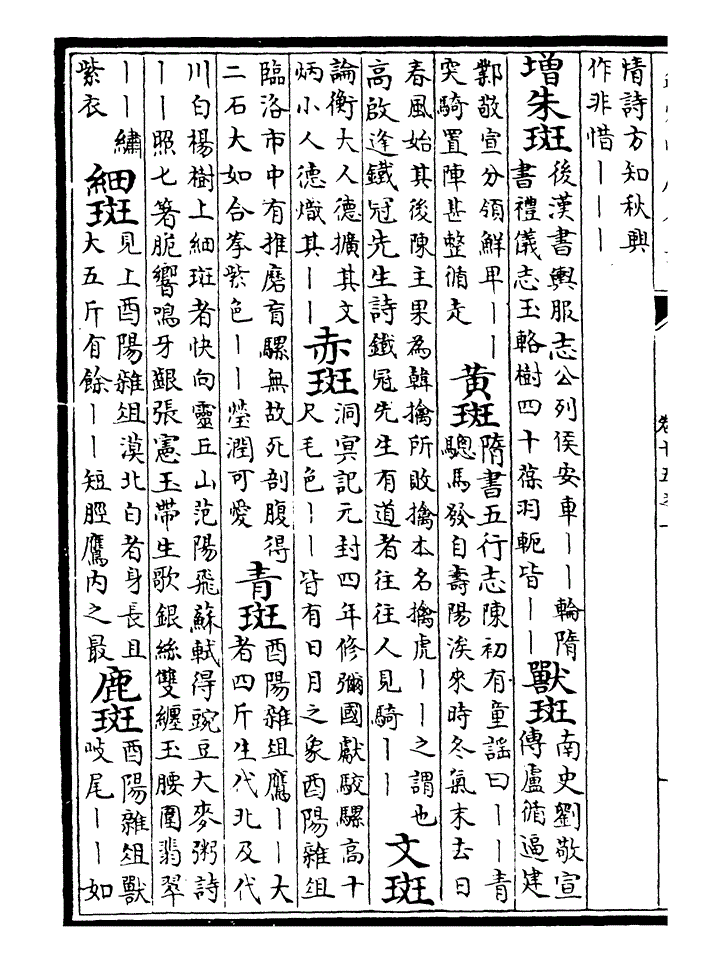 情詩方知秋興
作非惜丨丨丨
增朱斑
後漢書輿服志公列侯安車丨丨輪隋
書禮儀志玉輅樹四十葆羽軛皆丨丨
獸斑
南史劉敬宣
傳盧循逼建
鄴敬宣分領鮮卑丨丨
突騎置陣甚整循走
黃斑
隋書五行志陳初有童謠曰丨丨青
驄馬發自壽陽涘來時冬氣末去日
春風始其後陳主果為韓擒所敗擒本名擒虎丨丨之謂也
高啟逢鐵冠先生詩鐵冠先生有道者往往人見騎丨丨
文斑
論衡大人德擴其文
炳小人德熾其丨丨
赤斑
洞冥記元封四年修彌國獻駮騾高十
尺毛色丨丨皆有日月之象酉陽雜俎
臨洛市中有推磨盲騾無故死剖腹得
二石大如合拳紫色丨丨瑩潤可愛
青斑
酉陽雜俎鷹丨丨大
者四斤生代北及代
川白楊樹上細斑者快向靈丘山范陽飛蘇軾得豌豆大麥粥詩
丨丨照七箸脆響鳴牙齦張憲玉帶生歌銀絲雙纏玉腰圍翡翠
丨丨繡
紫衣
細斑
見上酉陽雜俎漠北白者身長且
大五斤有餘丨丨短脛鷹內之最
鹿斑
酉陽雜俎獸
岐尾丨丨如